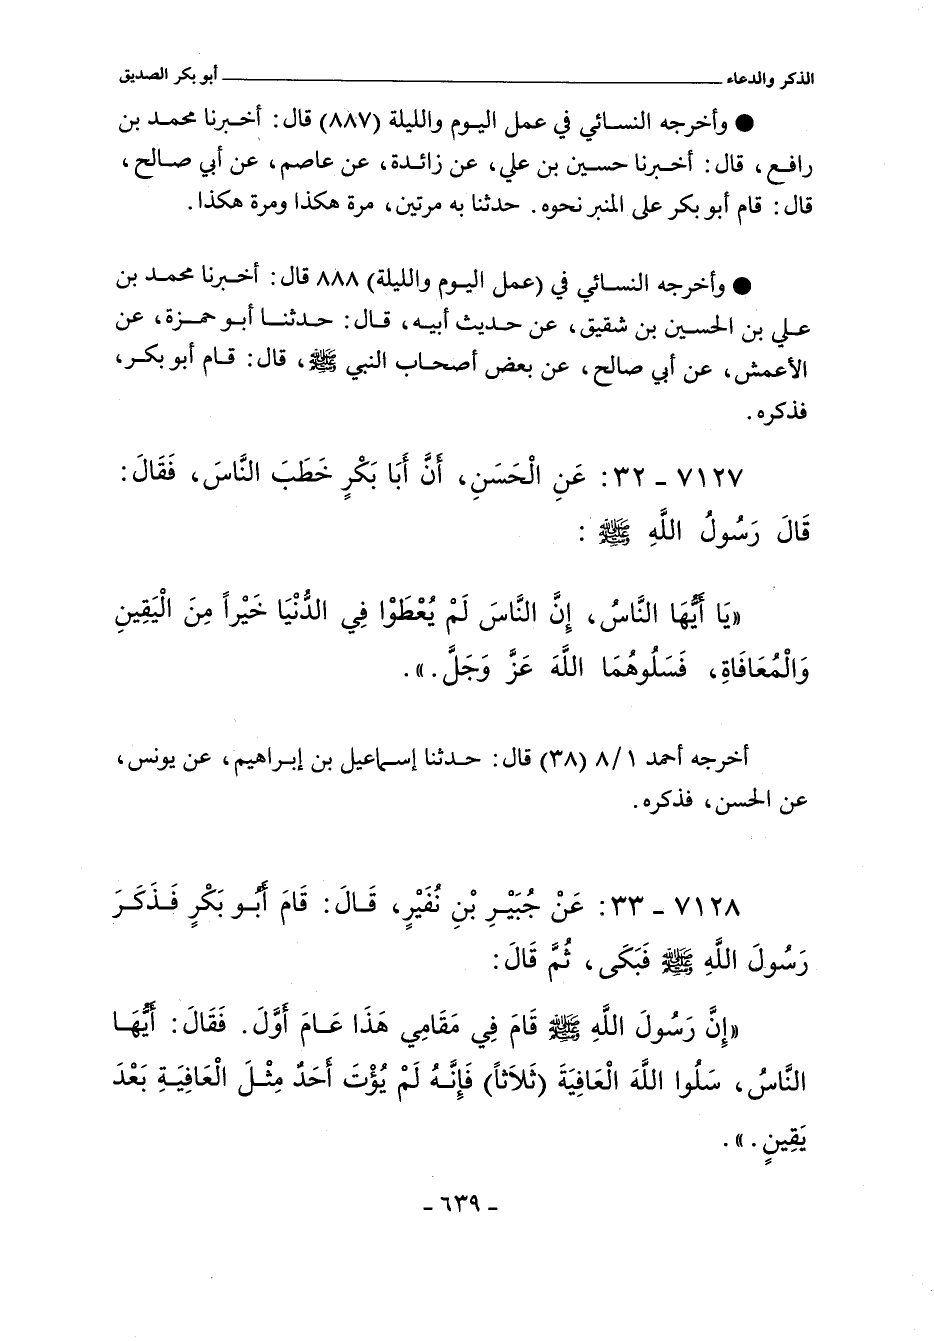 الذكر والدعاء ــــــــ أبو بكر الصديق
● وأخرجه النسائي في عمل اليوم والليلة (٨٨٧) قال: أخبرنا محمد بن
رافع، قال: أخبرنا حسين بن علي، عن زائدة، عن عاصم، عن أبي صالح،
قال: قام أبو بكر على المنبر نحوه. حدثنا به مرتين، مرة هكذا ومرة هكذا.
● وأخرجه النسائي في (عمل اليوم والليلة) ٨٨٨ قال: أخبرنا محمد بن
علي بن الحسين بن شقيق، عن حديث أبيه، قال: حدثنا أبو حمزة، عن
الأعمش، عن أبي صالح، عن بعض أصحاب النبي ﷺ، قال: قام أبو بكر،
فذكره.
٧١٢٧ - ٣٢: عَنِ الْحَسَنِ، أَنَّ أَبَا بَكْرٍ خَطَبَ النَّاسَ، فَقَالَ:
قَالَ رَسُولُ اللَّهِ ﷺ :
«يَا أَيُّهَا النَّاسُ، إِنَّ النَّاسَ لَمْ يُعْطَوْا فِي الدُّنْيَا خَيْراً مِنَ الْيَقِينِ
وَالْمُعَافَاةِ، فَسَلُوهُمَا اللَّهَ عَزَّ وَجَلَّ.».
أخرجه أحمد ٨/١ (٣٨) قال: حدثنا إسماعيل بن إبراهيم، عن يونس،
عن الحسن، فذكره.
٧١٢٨ - ٣٣: عَنْ جُبَيْرِ بْنِ نُفَيْرٍ، قَالَ: قَامَ أَبُو بَكْرٍ فَذَكَرَ
رَسُولَ اللَّهِ ﷺ فَبَكَى، ثُمَّ قَالَ:
«إِنَّ رَسُولَ اللَّهِ ﷺ قَامَ فِي مَقَامِي هَذَا عَامَ أَوَّلَ. فَقَالَ: أَيُّهَا
النَّاسُ، سَلُوا اللَّهَ الْعَافِيَةَ (ثَلاَثاً) فَإِنَّهُ لَمْ يُؤْتَ أَحَدٌ مِثْلَ الْعَافِيَةِ بَعْدَ
يَقِينٍ.».
- ٦٣٩ -